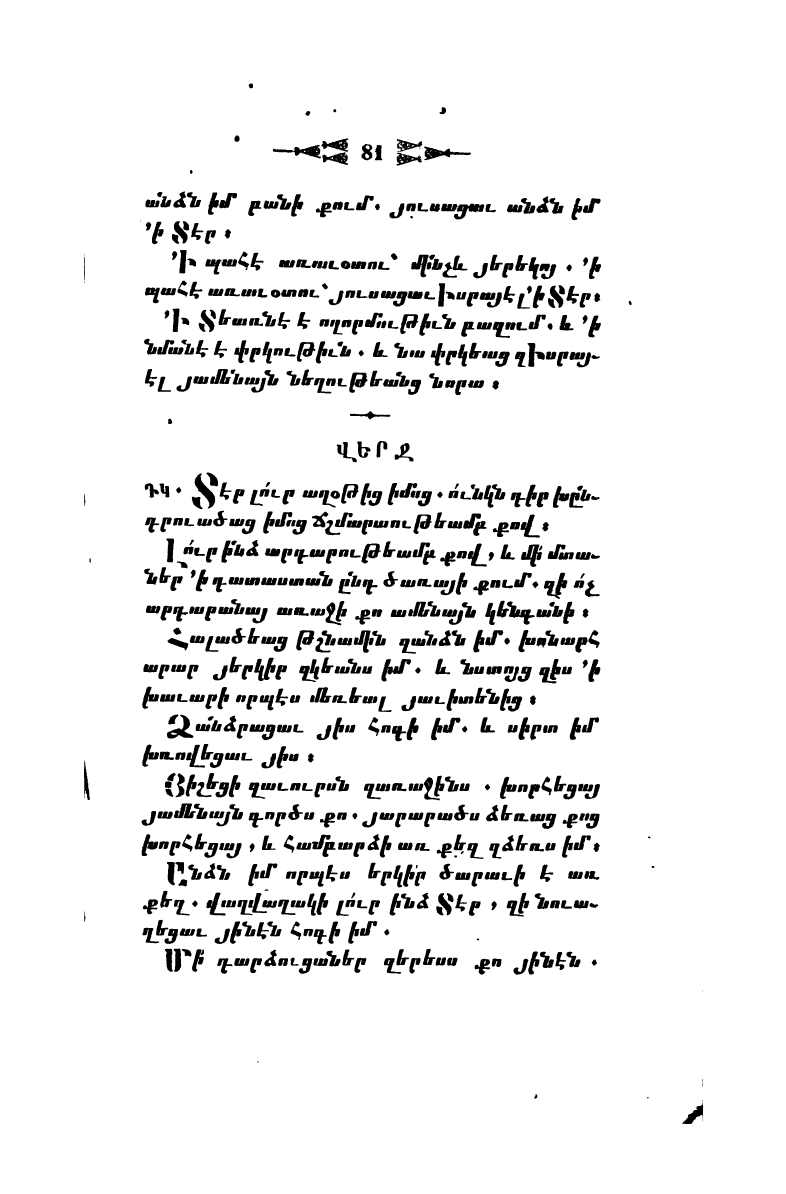 81
անձն իմ բանի քում. յուսացաւ անձն իմ
՚ի Տէր ։
՚Ի պահէ առաւօտու՝ մինչև յերեկոյ . ՚ի
պահէ առաւօտու՝ յուսացաւ Իսրայէլ ՚ի Տէր։
՚Ի Տեառնէ է ողորմութիւն բազում. և ՚ի
նմանէ է փրկութիւն . և նա փրկեաց զԻսրայ-
էլ յամենայն նեղութեանց նորա ։
ՎԵՐՋ
ԴԿ . Տէր լո՛ւր աղօթից իմոց . ո՛ւնկն դիր խըն-
դրուածաց իմոց ճշմարտութեամբ քով ։
Լո՛ւր ի՛նձ արդարութեամբ քով , և մի՛ մտա-
ներ ՚ի դատաստան ընդ ծառայի քում. զի ո՛չ
արդարանայ առաջի քո ամենայն կենդանի ։
Հալածեաց թշնամին զանձն իմ. խոնարհ
արար յերկիր զկեանս իմ . և նստոյց զիս ՚ի
խաւարի որպէս մեռեալ յաւիտենից ։
Ձանձրացաւ յիս հոգի իմ. և սիրտ իմ
խռովեցաւ յիս ։
Յիշեցի զաւուրսն զառաջինս . խորհեցայ
յամենայն գործս քո . յարարածս ձեռաց քոց
խորհեցայ , և համբարձի առ քեզ զձեռս իմ։
Անձն իմ որպէս երկիր ծարաւի է առ
քեզ . վաղվաղակի լո՛ւր ինձ Տէր , զի նուա-
ղեցաւ յինէն հոգի իմ .
Մի՛ դարձուցաներ զերեսս քո յինէն .